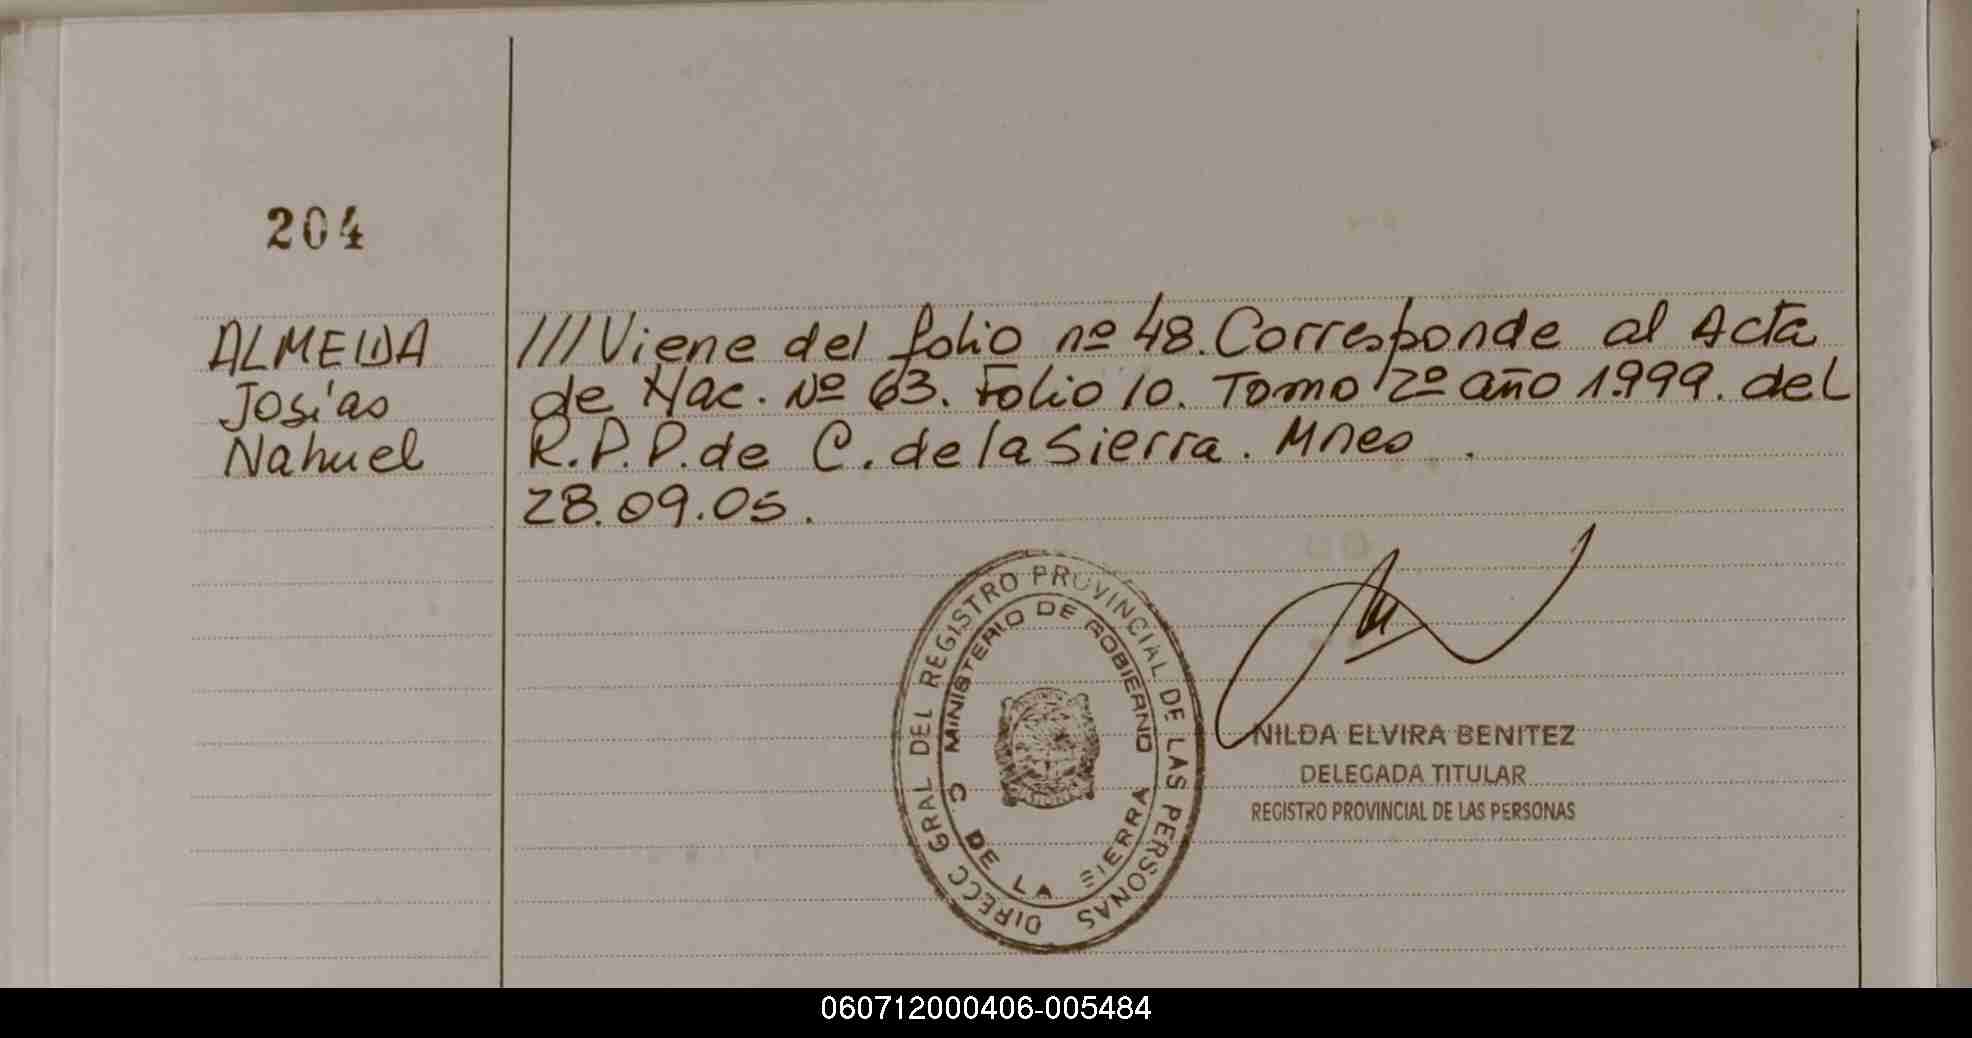 204
ALMEIDA
Josías
Nahuel
///Viene del folio nº 48. Corresponde al Acta
de Nac. Nº 63. Folio 10. Tomo 2º año 1.999. del
R.P.P. de C. de la Sierra. Mnes.
28.09.05.
DIRECC GRAL DEL REGISTRO PROVINCIAL DE LAS PERSONAS
MINISTERIO DE GOBIERNO
C DE LA SIERRA
NILDA ELVIRA BENITEZ
DELEGADA TITULAR
REGISTRO PROVINCIAL DE LAS PERSONAS
060712000406-005484